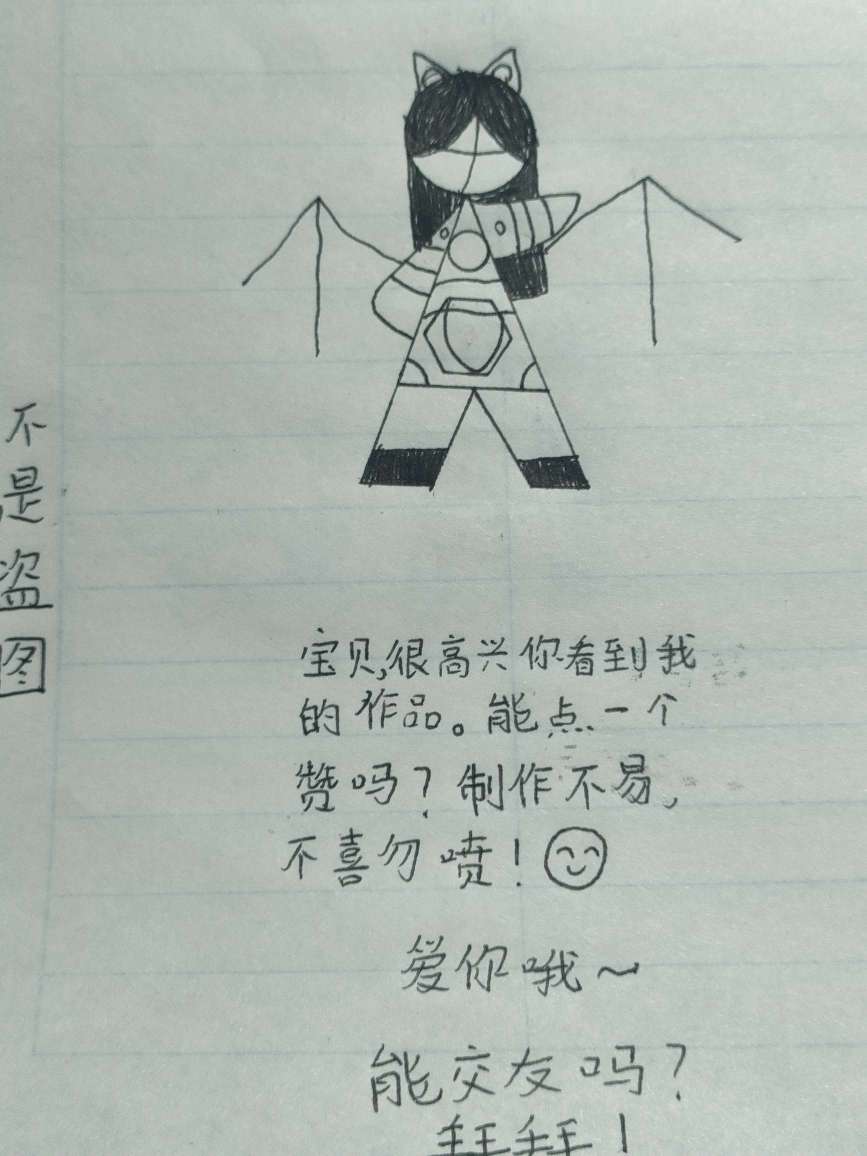 不是盗图
宝贝,很高兴你看到我
的作品。能点一个
赞吗？制作不易，
不喜勿喷！
爱你哦～
能交友吗？
拜拜！